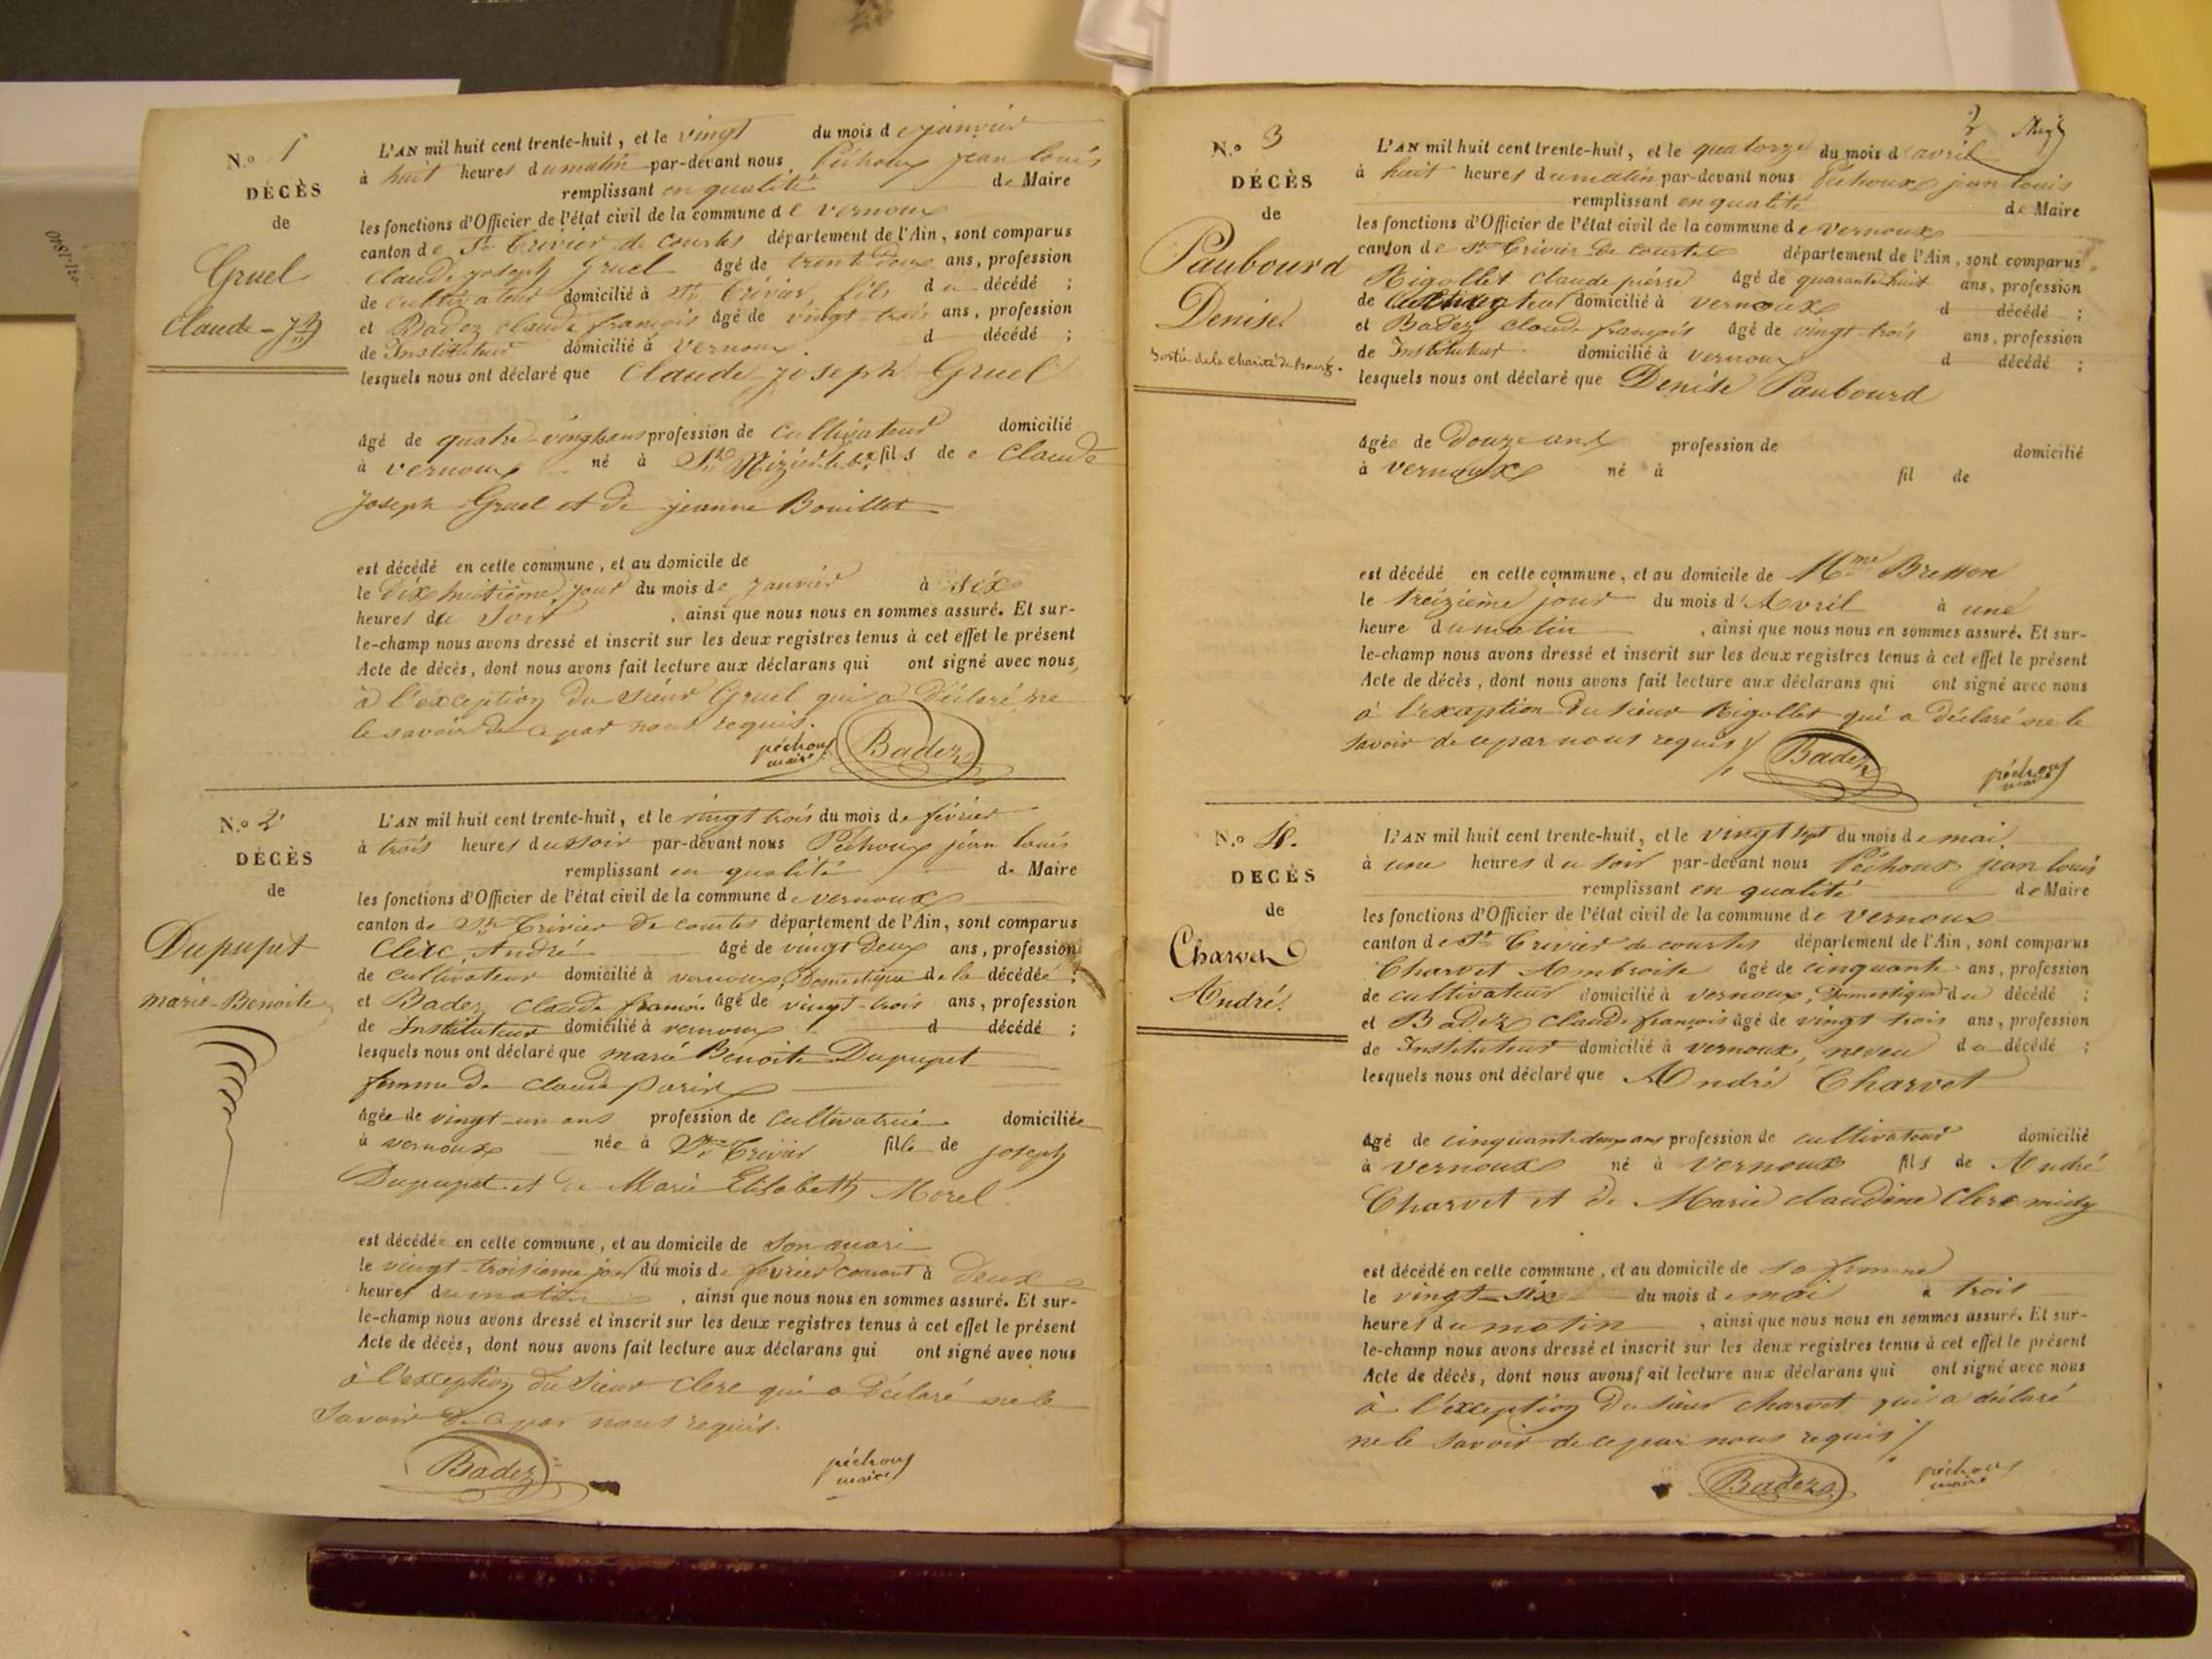 N.o 1
DÉCÈS
de
Gruel
Claude-Jph
L'AN mil huit cent trente-huit, et le vingt du mois de janvier
à huit heures du matin par-devant nous Péchoux jean louis
remplissant en qualité de Maire
les fonctions d'Officier de l'état civil de la commune de vernoux
canton de St Trivier de Courtes département de l'Ain, sont comparus
Claude joseph Gruel âgé de trente deux ans, profession
de cultivateur domicilié à St Trivier, fils du décédé ;
et Badez claude françois âgé de vingt-trois ans, profession
de Instituteur domicilié à Vernoux. d décédé ;
lesquels nous ont déclaré que Claude joseph Gruel
âgé de quatre-vingts ans profession de cultivateur domicilié
à vernoux né à St Nizier le b. fils de Claude
joseph Gruel et de jeanne Bouillet
est décédé en cette commune, et au domicile de
le dix huitième jour du mois de janvier à six
heures du soir , ainsi que nous nous en sommes assuré. Et sur-
le-champ nous avons dressé et inscrit sur les deux registres tenus à cet effet le présent
Acte de décès, dont nous avons fait lecture aux déclarans qui ont signé avec nous,
à l'exception du sieur Gruel qui a déclaré ne
le savoir de ce par nous requis.
péchoux maire Badez
N.o 2
DÉCÈS
de
Dupupet
marie-Benoite
L'AN mil huit cent trente-huit, et le vingt trois du mois de février
à trois heures du soir par-devant nous Péchoux jean louis
remplissant en qualité de Maire
les fonctions d'Officier de l'état civil de la commune de vernoux
canton de St Trivier de courtes département de l'Ain, sont comparus
Clerc André âgé de vingt deux ans, profession
de cultivateur domicilié à vernoux, Domestique de la décédée ;
et Badez claude françois âgé de vingt-trois ans, profession
de Instituteur domicilié à vernoux d décédé ;
lesquels nous ont déclaré que marie Benoite Dupupet
femme de claude
âgée de vingt-un ans profession de cultivatrice domiciliée
à vernoux née à St Trivier fille de joseph
Dupupet et de Marie Elisabeth Morel
est décédée en cette commune, et au domicile de son mari
le vingt-troisième jour du mois de février courant à deux
heures du matin , ainsi que nous nous en sommes assuré. Et sur-
le-champ nous avons dressé et inscrit sur les deux registres tenus à cet effet le présent
Acte de décès, dont nous avons fait lecture aux déclarans qui ont signé avec nous
à l'exception du sieur Clerc qui a déclaré ne le
savoir de ce par nous requis.
Badez péchoux maire
2
N.o 3
DÉCÈS
de
Paubourd
Denise
Sortie de la Charité de Bourg.
L'AN mil huit cent trente-huit, et le quatorze du mois d'avril
à huit heures du matin par-devant nous Péchoux jean louis
remplissant en qualité de Maire
les fonctions d'Officier de l'état civil de la commune de vernoux
canton de St Trivier de courtes département de l'Ain, sont comparus
Rigollet Claude pierre âgé de quarante huit ans, profession
de domicilié à vernoux d décédé ;
et Badez claude françois âgé de vingt-trois ans, profession
de Instituteur domicilié à vernoux d décédé ;
lesquels nous ont déclaré que Denise Paubourd
âgée de Douze ans profession de domicilié
à vernoux né à fil de
est décédé en cette commune, et au domicile de Mme Bresson
le treizième jour du mois d'Avril à une
heure du matin , ainsi que nous nous en sommes assuré. Et sur-
le-champ nous avons dressé et inscrit sur les deux registres tenus à cet effet le présent
Acte de décès, dont nous avons fait lecture aux déclarans qui ont signé avec nous
à l'exception du sieur Rigollet qui a déclaré ne le
savoir de ce par nous requis
Badez péchoux maire
N.o 4.
DÉCÈS
de
Charvet
André.
L'AN mil huit cent trente-huit, et le vingt sept du mois de mai
à une heures du soir par-devant nous Péchoux jean louis
remplissant en qualité de Maire
les fonctions d'Officier de l'état civil de la commune de vernoux
canton de St Trivier de courtes département de l'Ain, sont comparus
Charvet Ambroise âgé de cinquante ans, profession
de cultivateur domicilié à vernoux, Domestique du décédé ;
et Badez claude françois âgé de vingt trois ans, profession
de Instituteur domicilié à vernoux, neveu du décédé ;
lesquels nous ont déclaré que André Charvet
âgé de cinquante deux ans profession de cultivateur domicilié
à vernoux né à vernoux fils de André
Charvet et de Marie claudine Clerc midy
est décédé en cette commune, et au domicile de sa femme
le vingt-six du mois de mai à trois
heures du matin , ainsi que nous nous en sommes assuré. Et sur-
le-champ nous avons dressé et inscrit sur les deux registres tenus à cet effet le présent
Acte de décès, dont nous avons fait lecture aux déclarans qui ont signé avec nous
à l'exception du sieur Charvet qui a déclaré
ne le savoir de ce par nous requis
Badez péchoux maire